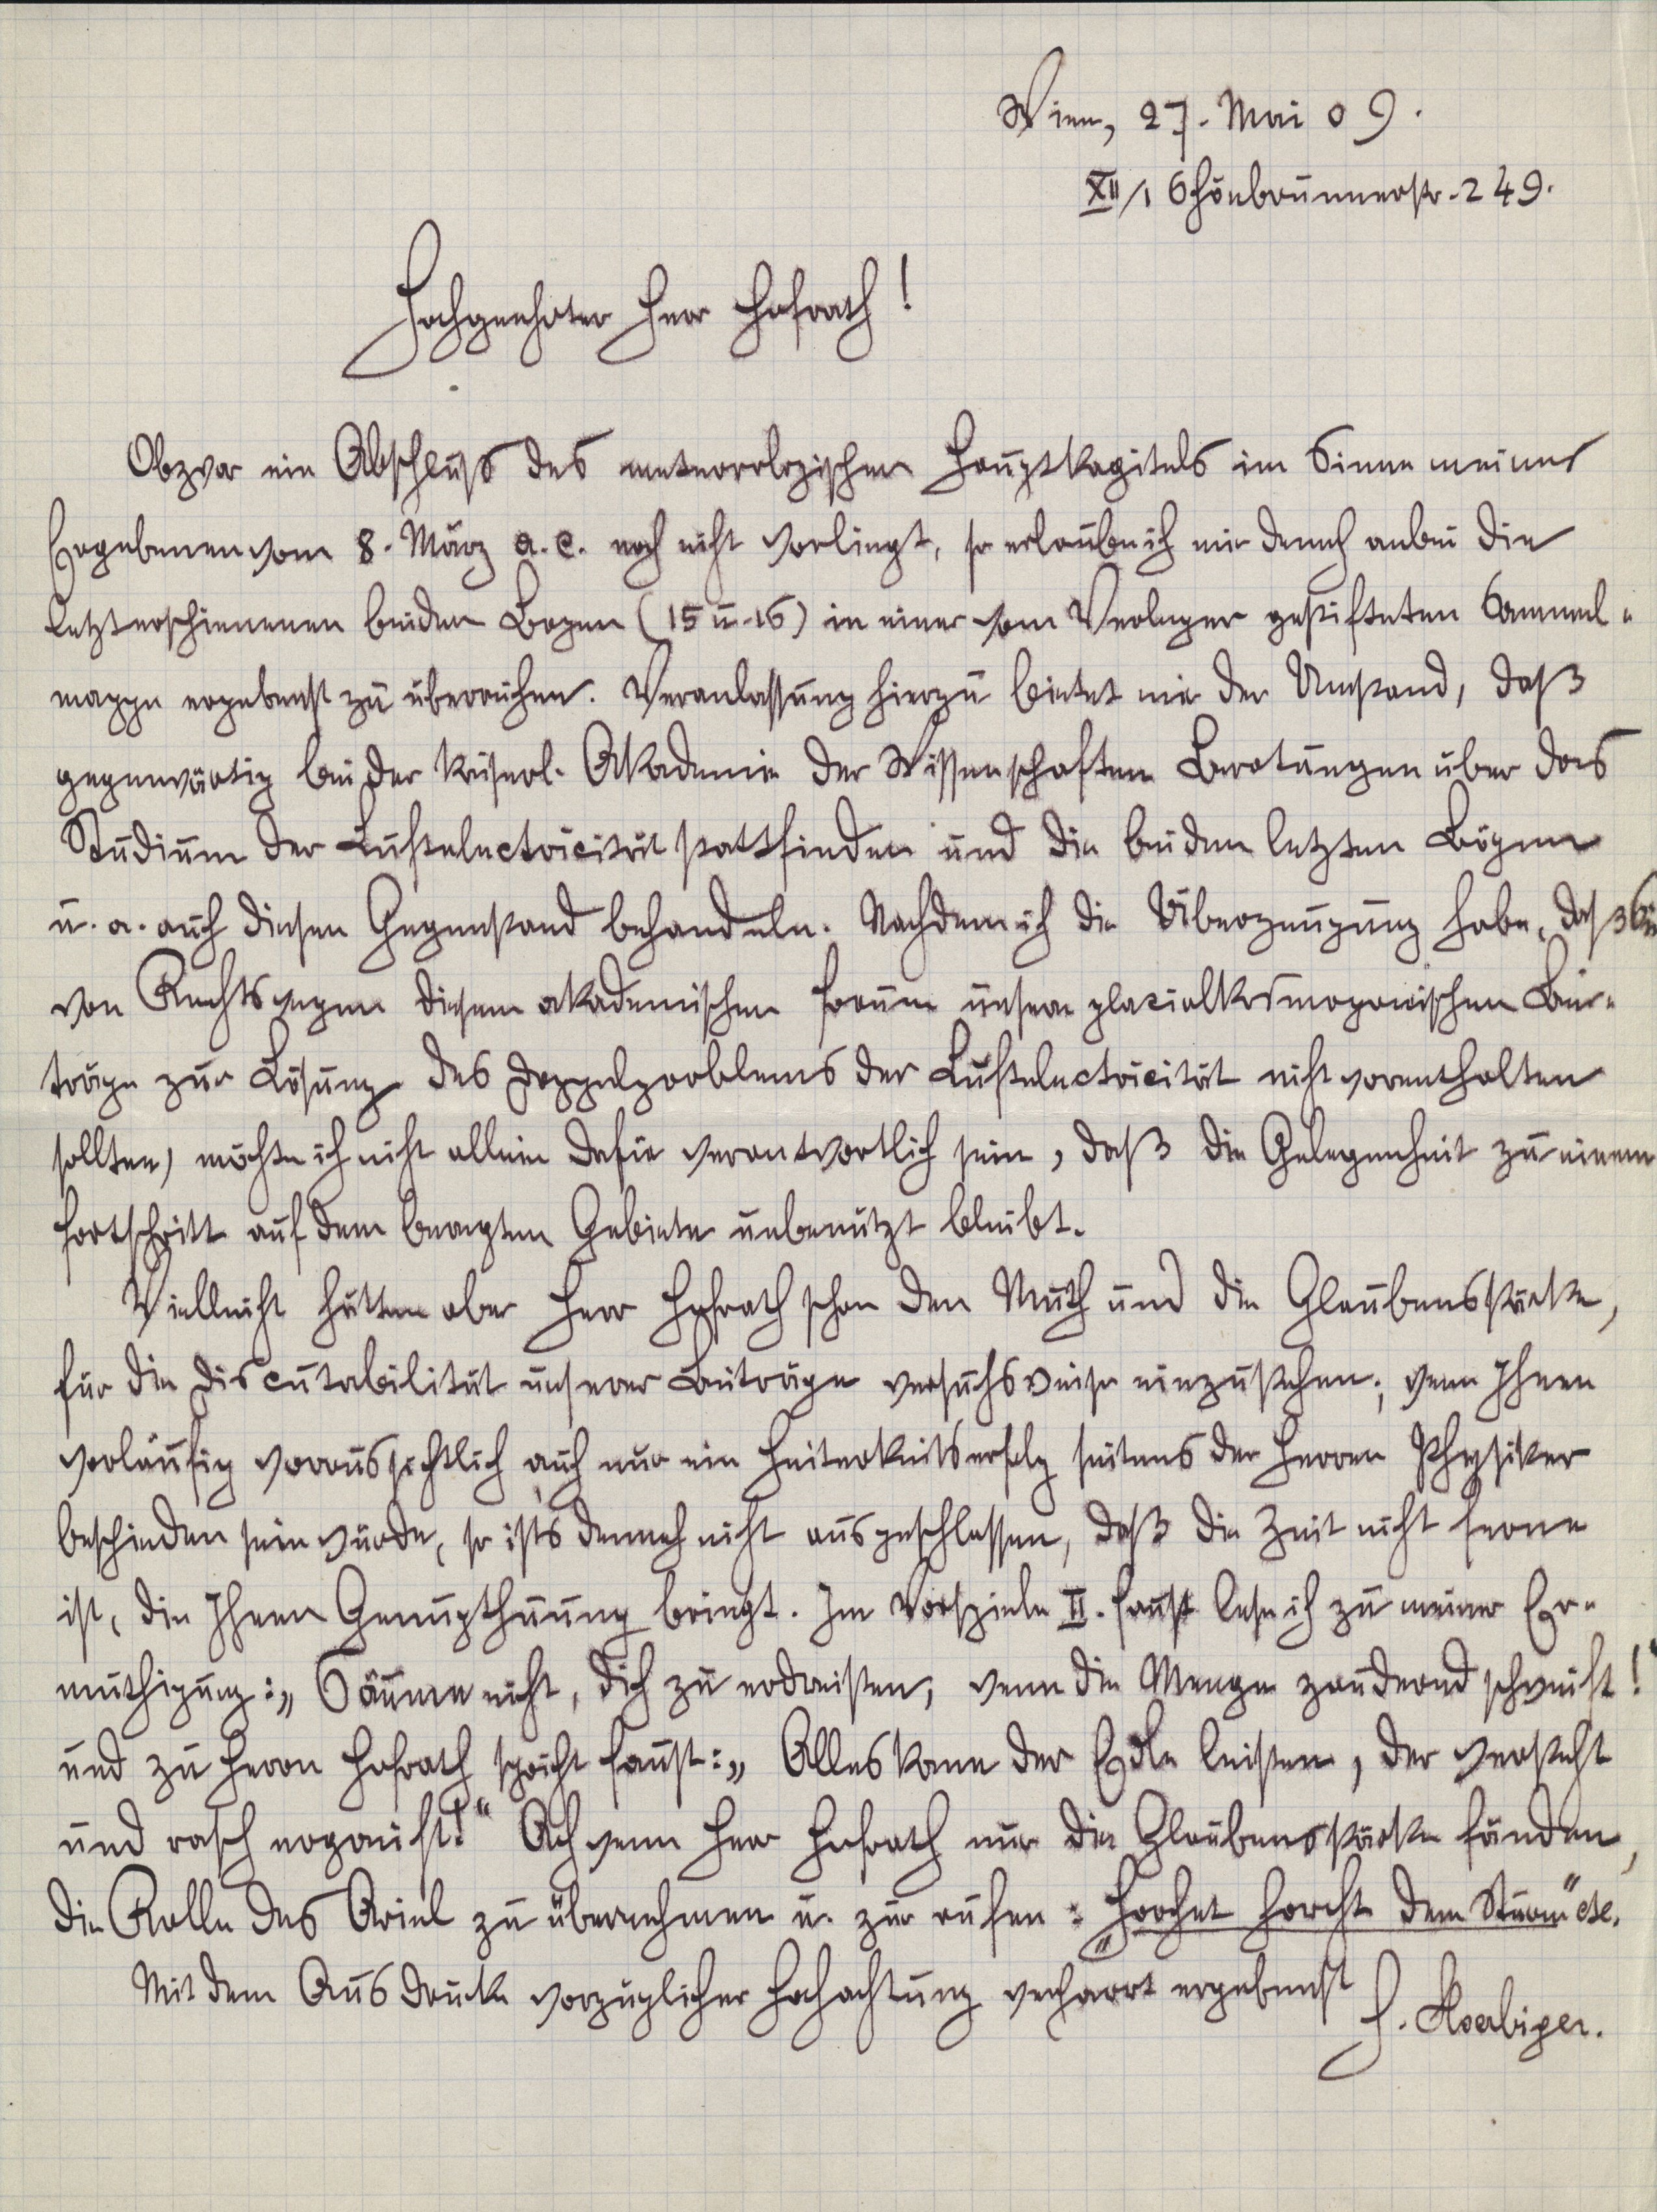 Wien, 27. Mai 09.
XII/1 Schönbrunnerstr. 249.
Hochgeehrter Herr Hofrath!
Obzwar ein Abschluss des meteorologischen Hauptkapitels im Sinne meines
Ergebenen vom 8. März a. c. noch nicht vorliegt, so erlaube ich mir dennoch anbei die
letzterschienenen beiden Bogen (15 u. 16) in einer vom Verleger gestifteten Sammel-
mappe ergebenst zu überreichen. Veranlassung hierzu bietet mir der Umstand, daß
gegenwärtig bei der kaiserl. Akademie der Wissenschaften Beratungen über das
Studium der Luftelectricität stattfinden und die beiden letzten Bögen
u. a. auch diesen Gegenstand behandeln. Nachdem ich die Überzeugung habe, daß Sie
von Rechtswegen diesem akademischen Forum unsere glacialkosmogonischen Bei-
träge zur Lösung des Doppelproblems der Luftelectricität nicht vorenthalten
sollten, möchte ich nicht allein dafür verantwortlich sein, daß die Gelegenheit zu einem
Fortschritt auf dem besagten Gebiete unbenützt bleibt.
Vielleicht hätten aber Herr Hofrath schon den Muth und die Glaubensstärke,
für die Discutabilität unserer Beiträge versuchsweise einzustehen; wenn Ihnen
vorläufig voraussichtlich auch nur ein Heiterkeitserfolg seitens der Herren Physiker
beschieden sein würde, so ists dennoch nicht ausgeschlossen, daß die Zeit nicht ferne
ist, die Ihnen Genugthuung bringt. Im Vorspiele II. Faust lese ich zu meiner Er-
muthigung: „Säume nicht, dich zu erdreisten, wenn die Menge zaudernd schweift!“
und zu Herrn Hofrath spricht Faust: „Alles kann der Edle leisten, der versteht
und rasch ergreift!“ Ach wenn Herr Hofrath nur die Glaubensstärke fänden,
die Rolle des Ariel zu übernehmen u. zur rufen: „Horchet horcht dem Sturm“ etc.
Mit dem Ausdrucke vorzüglicher Hochachtung verharrt ergebenst
H. Hoerbiger.